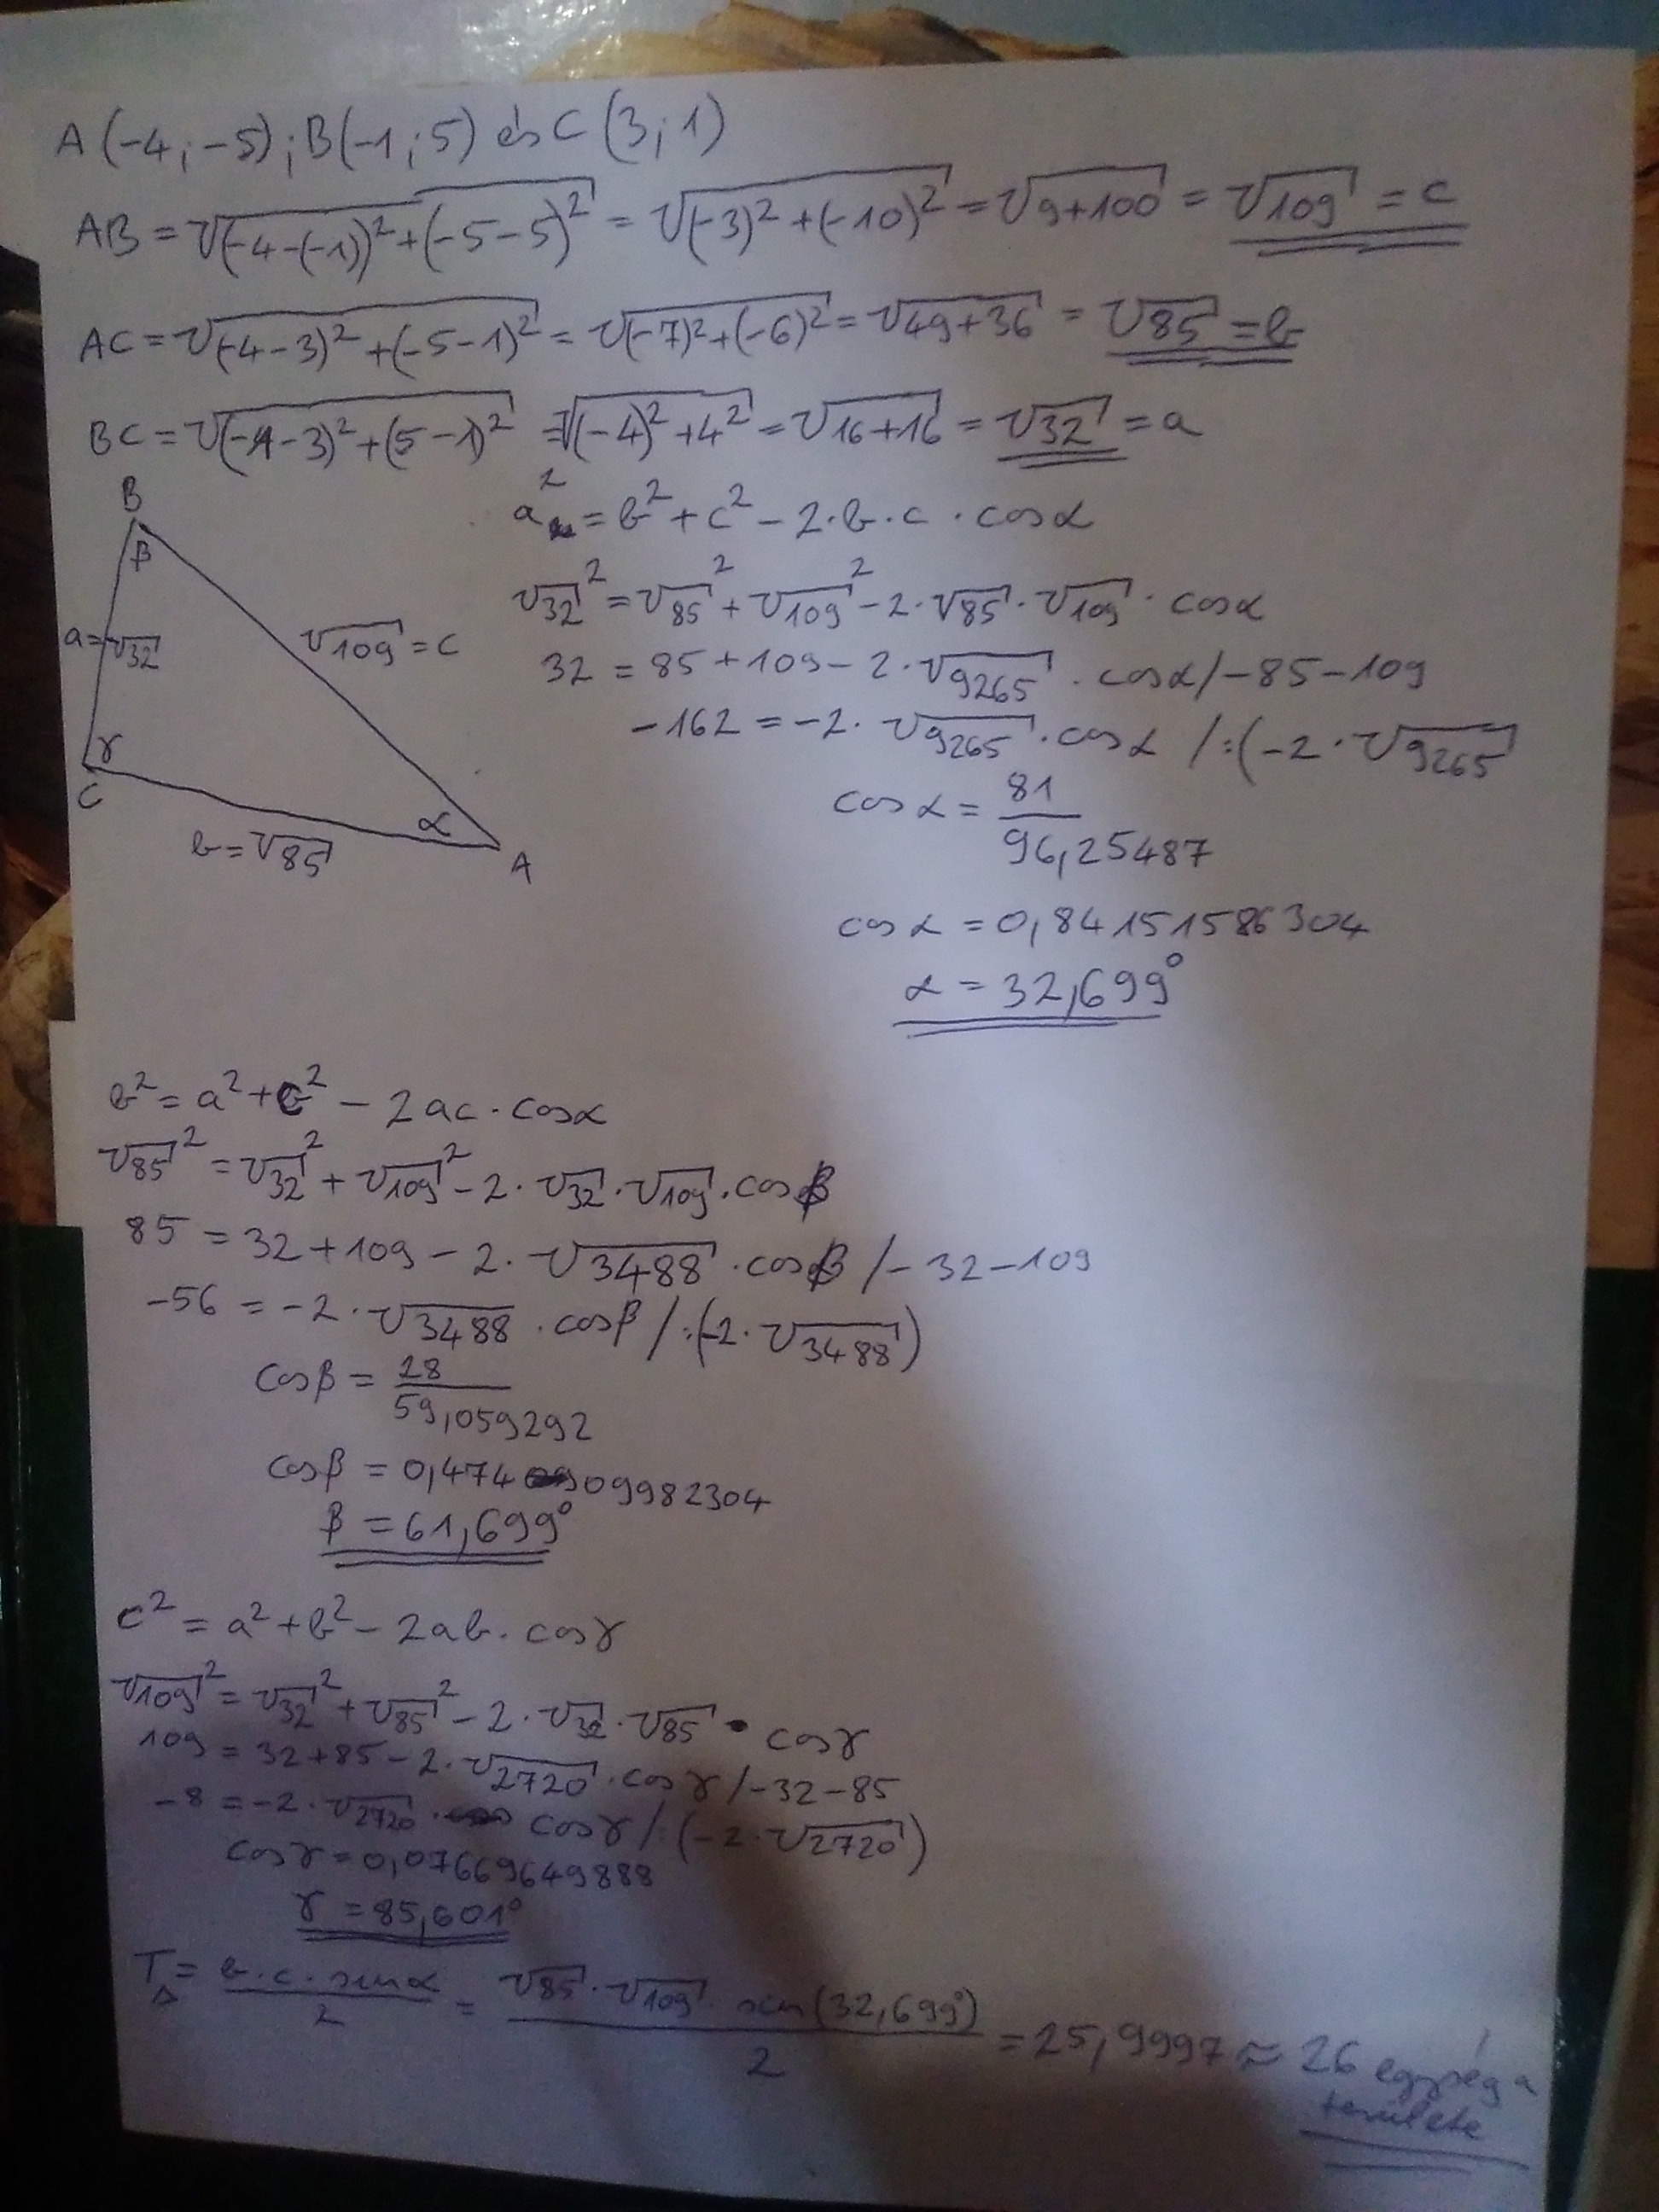 A(-4;-5); B(-1;5) és C(3;1)
AB = √((-4-(-1))²+(-5-5)²) = √((-3)²+(-10)²) = √(9+100) = √109 = c
AC = √((-4-3)²+(-5-1)²) = √((-7)²+(-6)²) = √(49+36) = √85 = b
BC = √((-1-3)²+(5-1)²) = √((-4)²+4²) = √(16+16) = √32 = a
B
β
a=√32
√109=c
γ
C
α
b=√85
A
a² = b²+c²-2·b·c·cosα
√32² = √85²+√109²-2·√85·√109·cosα
32 = 85+109-2·√9265·cosα /-85-109
-162 = -2·√9265·cosα /:(-2·√9265
cosα = 81/96,25487
cosα = 0,84151586304
α = 32,699°
b² = a²+c²-2ac·cosα
√85² = √32²+√109²-2·√32·√109·cosβ
85 = 32+109-2·√3488·cosβ /-32-109
-56 = -2·√3488·cosβ /:(-2·√3488)
cosβ = 28/59,059292
cosβ = 0,47409982304
β = 61,699°
c² = a²+b²-2ab·cosγ
√109² = √32²+√85²-2·√32·√85·cosγ
109 = 32+85-2·√2720·cosγ /-32-85
-8 = -2·√2720·cosγ /:(-2·√2720)
cosγ = 0,07669649888
γ = 85,601°
T△ = b·c·sinα/2 = √85·√109·sin(32,699°)/2 = 25,9997 ≈ 26 egység a
területe